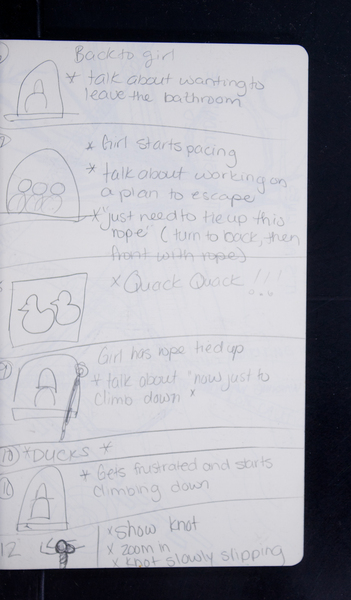 Back to girl
* talk about wanting to
leave the bathroom
* Girl starts pacing
* talk about working on
a plan to escape
* "just need to tie up this
rope" (turn to back, then
front with rope)
* Quack Quack!!!
Girl has rope tied up
9)
* talk about "now just to
climb down"
10) *DUCKS*
11)
* Gets frustrated and starts
climbing down
12
* show knot
* zoom in
* knot slowly slipping